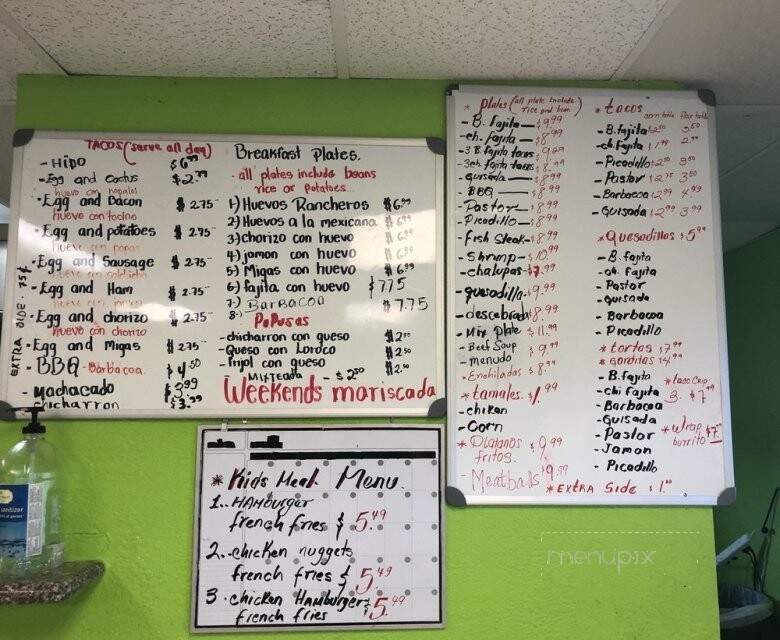 TACOS (serve all day)
- Hipo $6.99
- Egg and Cactus $2.99
huevo con nopales
- Egg and Bacon $2.75
huevo con tocino
- Egg and potatoes $2.75
huevo con papas
- Egg and Sausage $2.75
- Egg and Ham $2.75
huevo con jamon
- Egg and chorizo $2.75
huevo con chorizo
- Egg and Migas $2.75
- BBQ - Barbacoa. $4.50
- Machacado $3.99
chicharron $3.99
EXTRA SIDE. 75¢
Breakfast Plates.
- all plates include beans
rice or potatoes...
1) Huevos Rancheros $6.99
2) Huevos a la mexicana $6.99
3) chorizo con huevo $6.99
4) jamon con huevo $6.99
5) Migas con huevo $6.99
6) fajita con huevo $7.75
7-) Barbacoa $7.75
8-)
PuPusas
- chicharron con queso
- Queso con Loroco $2.50
- frijol con queso $2.50
Mixteada - $2.50
Weekends mariscada
* Plates (all plate include
rice and bean)
- B. fajita — $9.99
- ch. fajita — $8.99
- 3 B. fajita tacos
- 3ch. fajita tacos
- guisada — $8.99
- BBQ — $8.99
- Pastor — $8.99
- Picadillo — $8.99
- fish Steak - $8.99
- Shrimp — $10.99
- chalupas $7.99
- quesadilla $9.99
- descebrada $8.99
- Mix Plate $11.99
- Beef Soup $9.99
- menudo
- Enchiladas $8.99
* tamales $1.99
- chiken
- Corn
* Platanos $9.99
fritos.
- Meatballs $9.99
* EXTRA Side $1.00
* tacos
corn torti flour torti
- B. fajita $2.50 3.50
- ch. fajita $1.99 2.99
- Picadillo $2.50 3.50
- Pastor $2.75 3.50
- Barbacoa $2.99 4.49
- Guisada $2.99 3.99
* Quesadillas $5.99
- B. fajita
- ch. fajita
- Pastor
- guisada
- Barbacoa
- Picadillo
* tortas $7.99
* Gorditas $4.99
- B. fajita
- chi fajita
- Barbacoa
- Guisada
- Pastor
- Jamon
- Picadillo
* taco Crisp
3. $7.99
* Wrap
burrito $7.99
* Kids Meal Menu.
1.. HAMburger
french fries $5.49
2.. chicken nuggets
french fries $5.49
3. chicken Hamburger $5.49
french fries
menupix